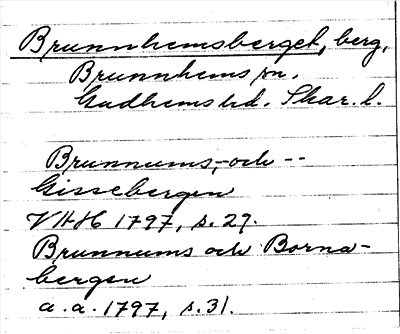 Brunnhemsberget, berg,
Brunnhems sn.
Gudhems hd. Skar. l.
Brunnums,- och --
Gissebergen
VHH 1797, s. 29.
Brunnums och Borna-
bergen
a. a. 1797, s. 31.